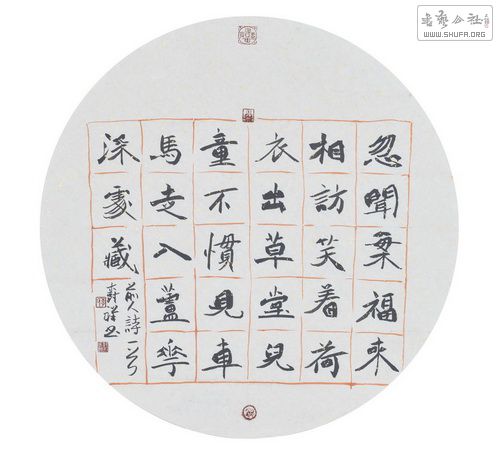 忽聞梅福来
相訪笑着荷
衣出草堂兒
童不慣見車
馬走入蘆華
深處藏
前人詩一首
書藝公社
WWW.SHUFA.ORG